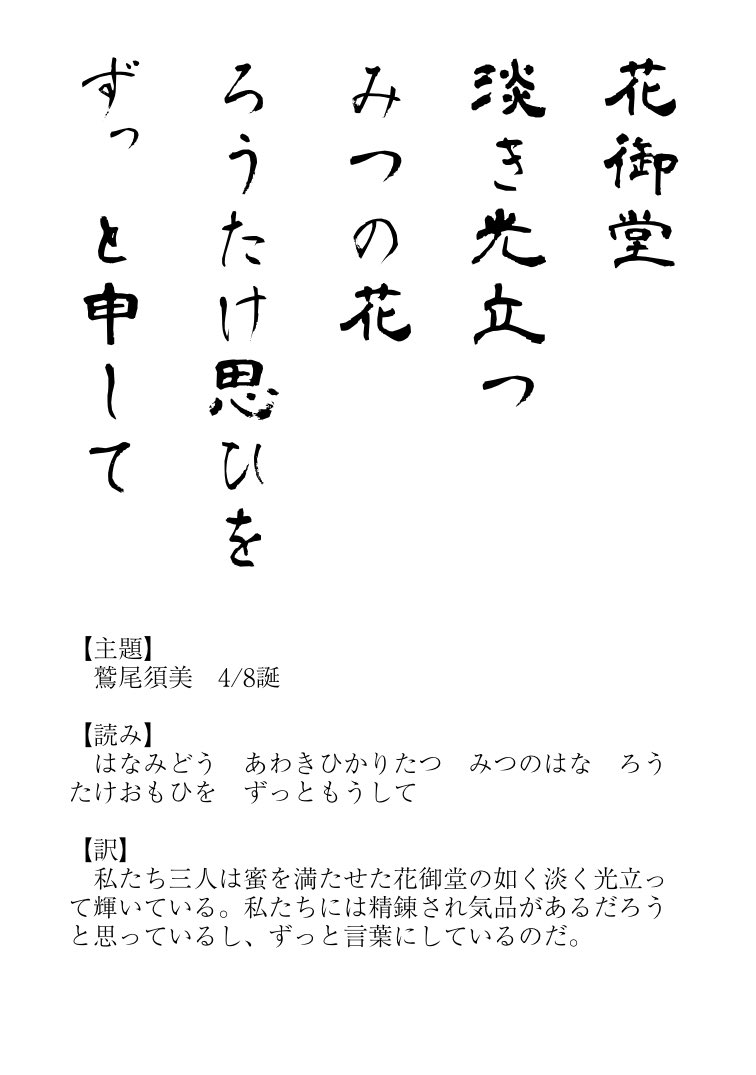 花御堂
淡き光立つ
みつの花
ろうたけ思ひを
ずっと申して
【主題】
　鷲尾須美　4/8誕
【読み】
　はなみどう　あわきひかりたつ　みつのはな　ろう
たけおもひを　ずっともうして
【訳】
　私たち三人は蜜を満たせた花御堂の如く淡く光立っ
て輝いている。私たちには精錬され気品があるだろう
と思っているし、ずっと言葉にしているのだ。